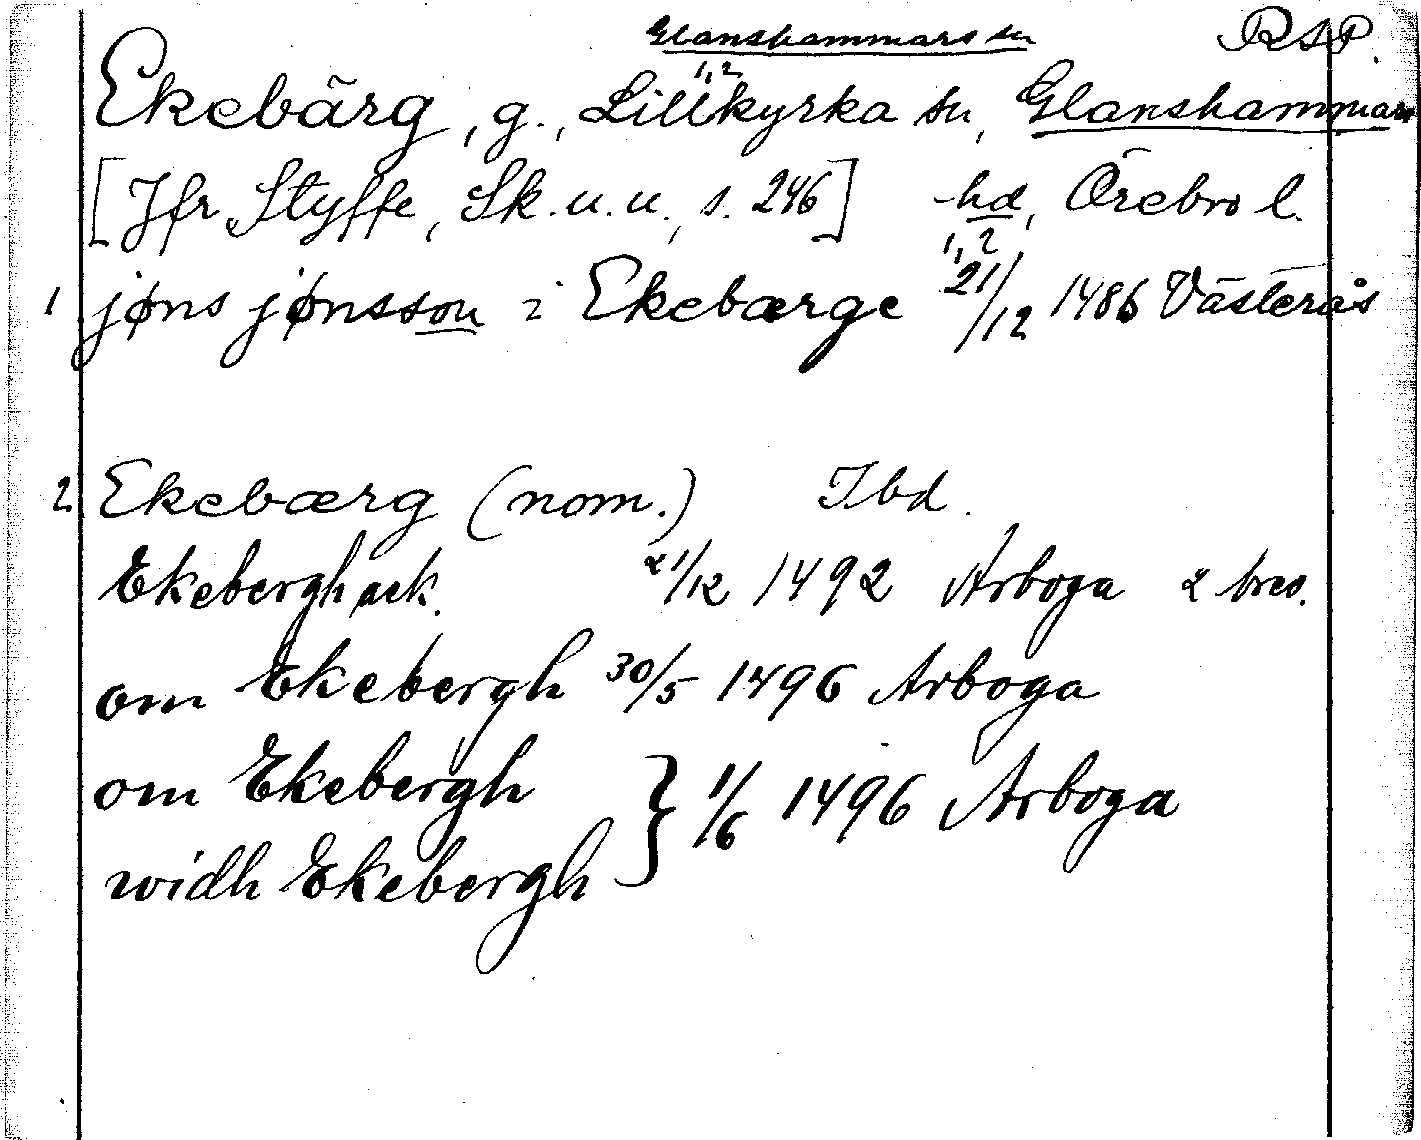 Glanshammars sn RSP.
1,2
Ekebärg, g., Lillkyrka sn, Glanshammars
[Jfr Styffe, Sk. u. u., s. 246] -hd, Örebro l.
1,2
1 jøns jønsson i Ekebærge 21/12 1486 Västerås
2 Ekebærg (nom.) Ibd.
Ekebergh ack. 21/12 1492 Arboga 2 brev.
om Ekebergh 30/5 1496 Arboga
om Ekebergh } 1/6 1496 Arboga
widh Ekebergh